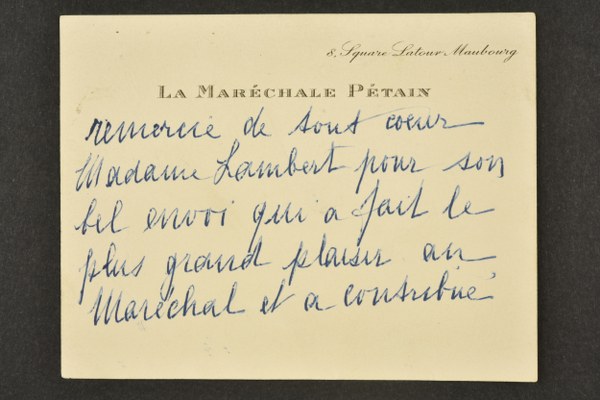 8, Square Latour-Maubourg
LA MARÉCHALE PÉTAIN
remercie de tout coeur
Madame Lambert pour son
bel envoi qui a fait le
plus grand plaisir au
Maréchal et a contribué